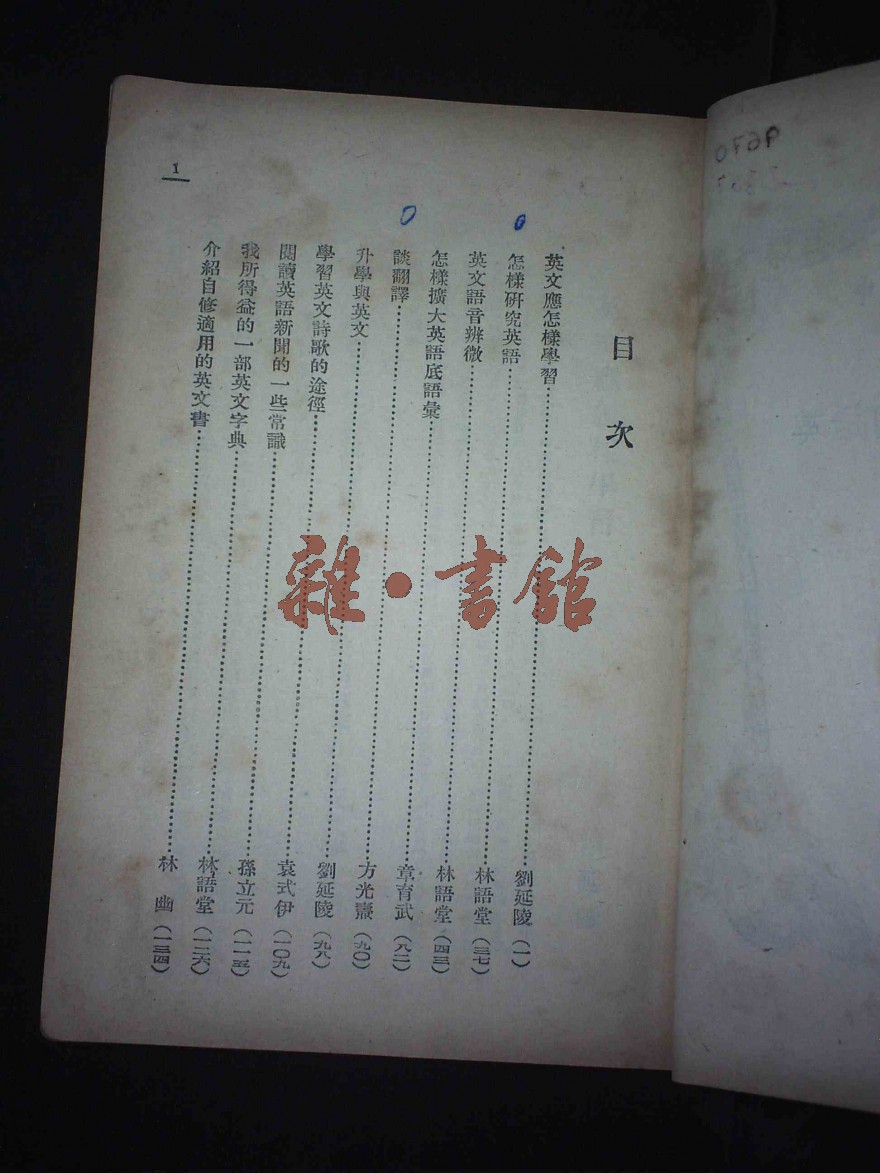 目次
英文應怎樣學習………劉延陵(一)
怎樣研究英語………林語堂(三七)
英文語音辨微………林語堂(四三)
怎樣擴大英語底語彙………章育武(八二)
談翻譯………方光燾(九〇)
升學與英文………劉延陵(九八)
學習英文詩歌的途徑………袁式伊(一〇九)
閱讀英語新聞的一些常識………孫立元(一一五)
我所得益的一部英文字典………林語堂(一二六)
介紹自修適用的英文書………林幽(一三四)
1
雜·書館